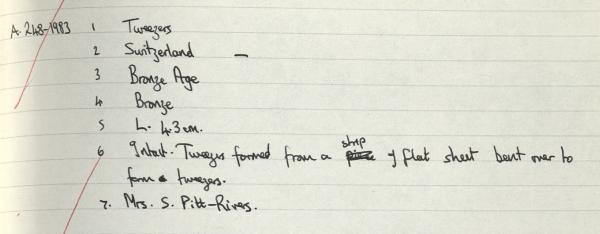 A. 248-1983 1 Tweezers
2 Switzerland –
3 Bronze Age
4 Bronze
5 L. 4.3 cm.
6 Intact. Tweezers formed from a strip of flat sheet bent over to
form tweezers.
7. Mrs. S. Pitt-Rivers.